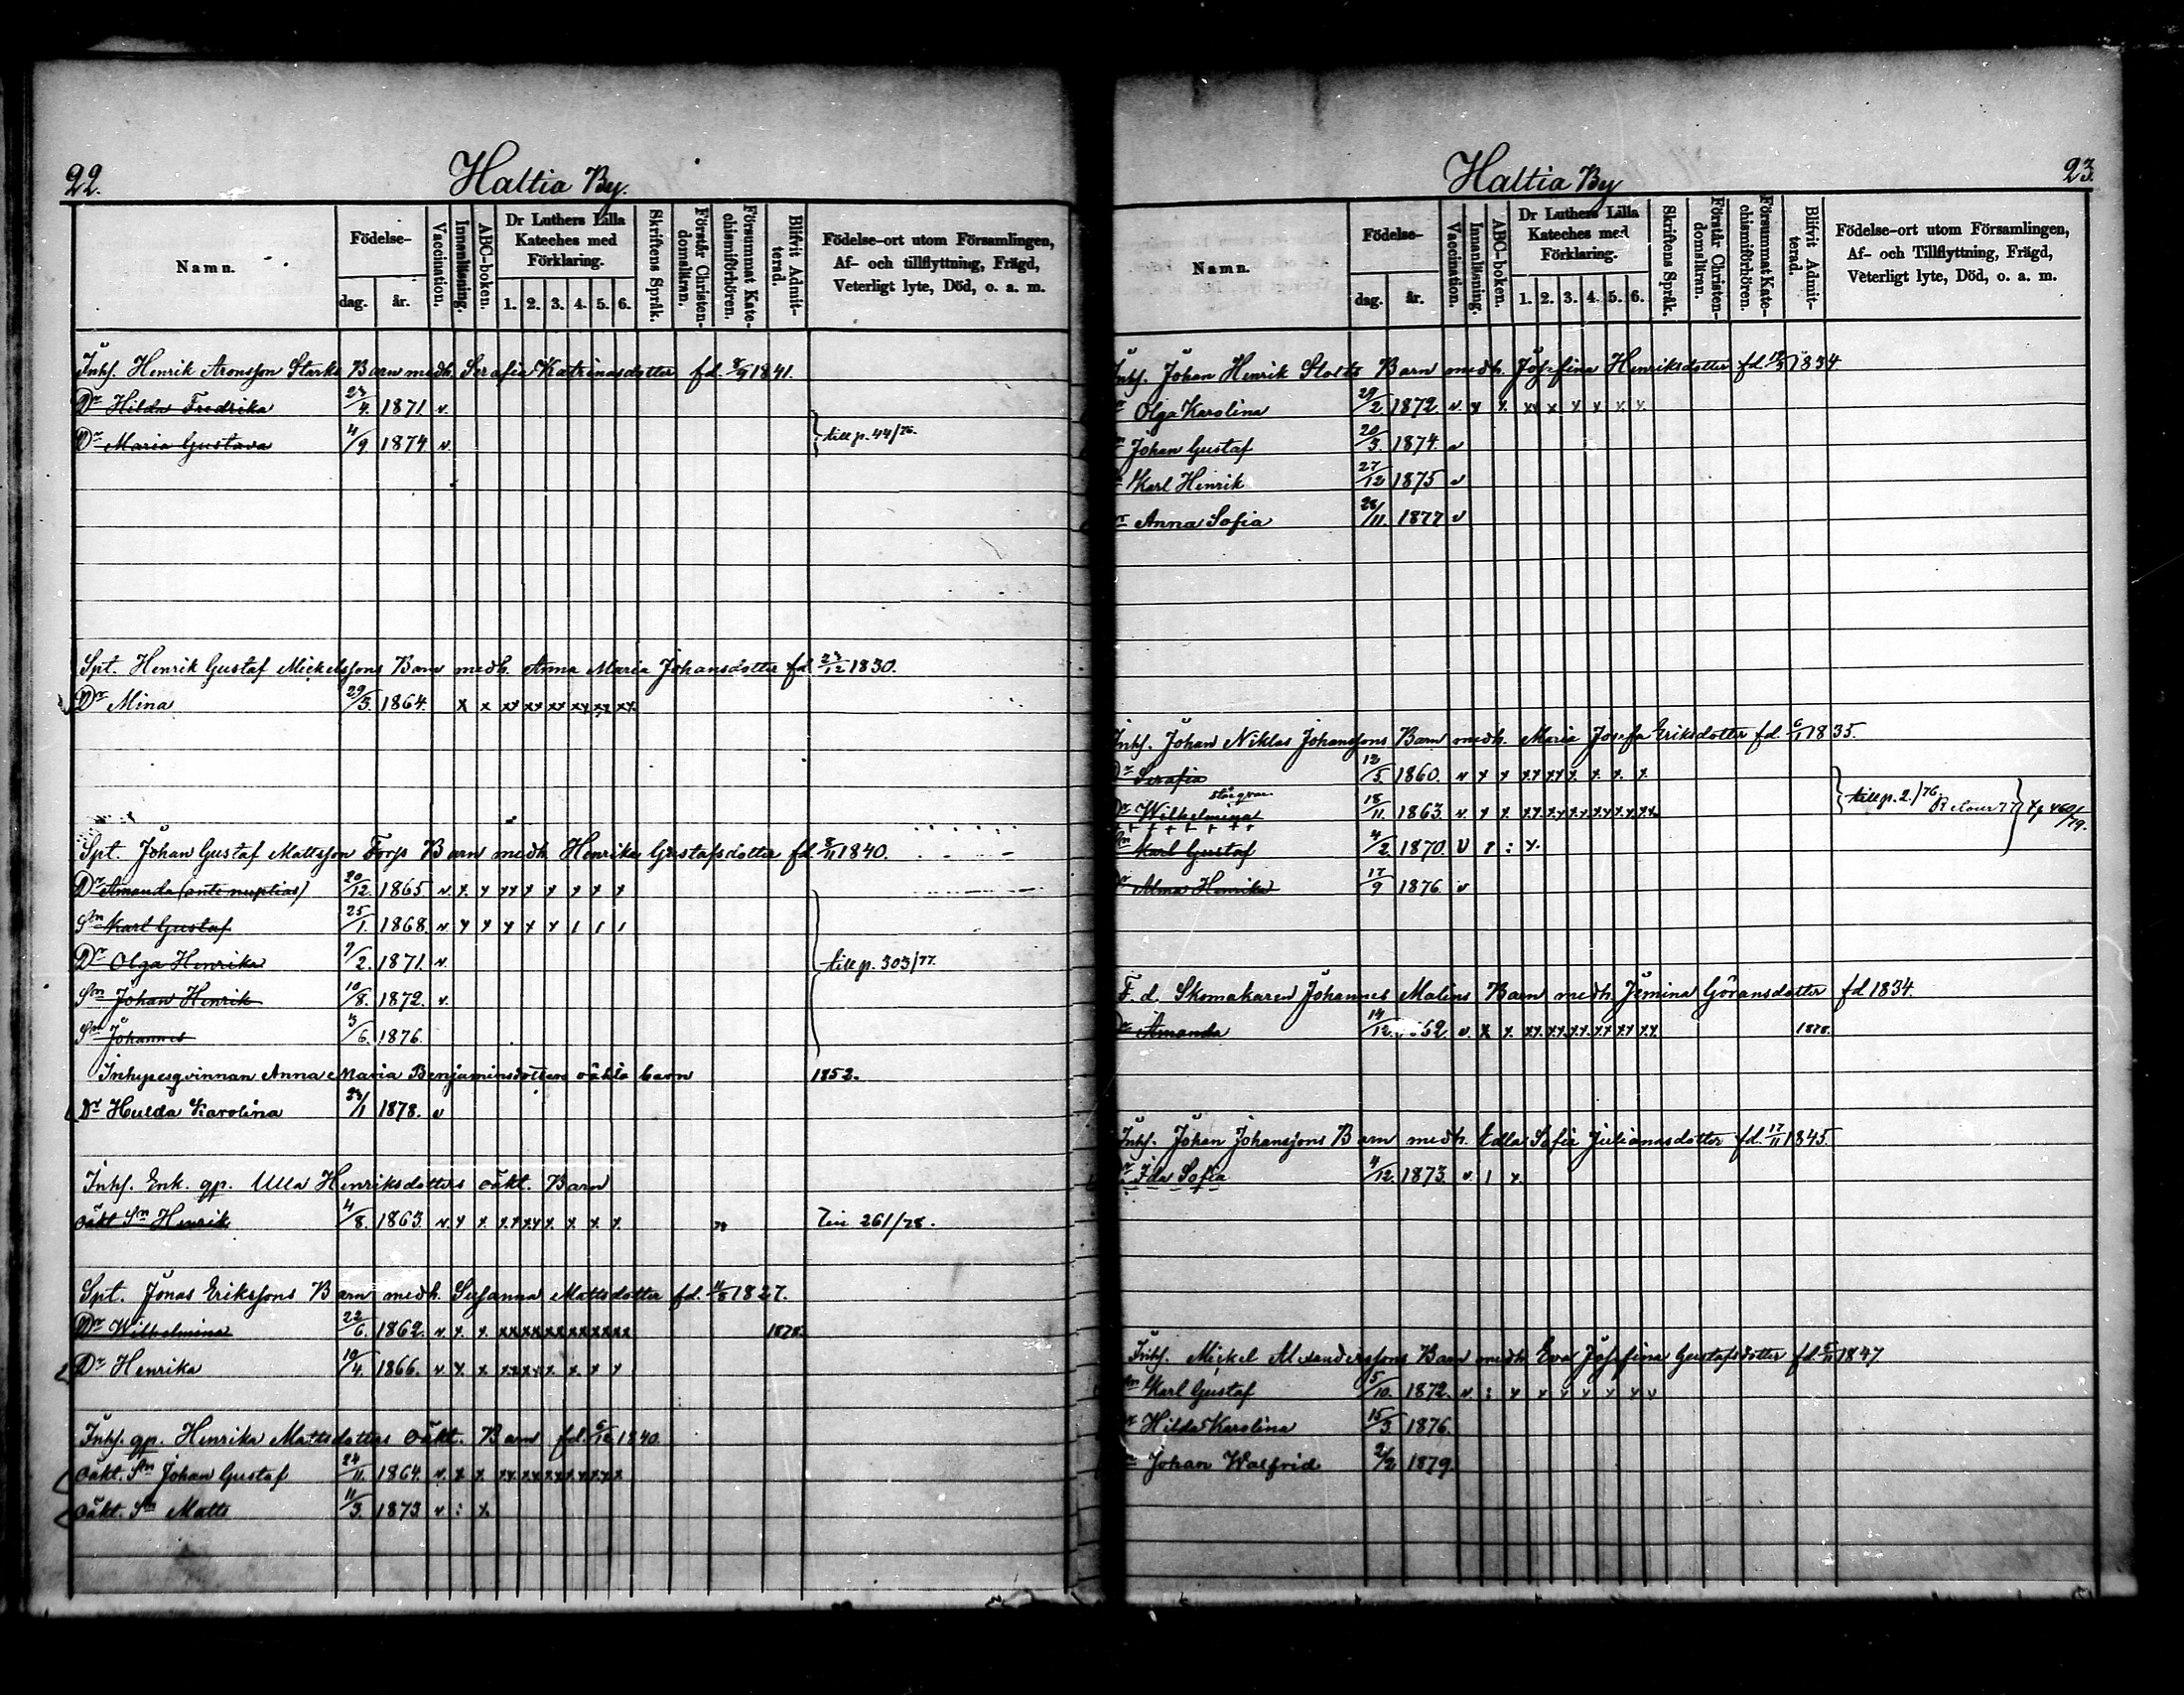 22.
Haltia By.
Namn.
Födelse-
dag.
år.
Vaccination.
Innanläsning.
ABC-boken.
Dr Luthers Lilla Kateches med Förklaring.
1. 2. 3. 4. 5. 6.
Skriftens Språk.
Förstår Christen-domsläran.
Försummat Kate-chismiförhören.
Blifvit Admit-terad.
Födelse-ort utom Församlingen, Af- och tillflyttning, Frägd, Veterligt lyte, Död, o. a. m.
Inhs. Henrik Aronsson Starks Barn medh. Serafia Katrinasdotter fd. 8/9 1841.
Dr Hilda Fredrika 23/4. 1871 v.
Dr Maria Gustava 4/9 1874 v. till p. 44/76.
Spt. Henrik Gustaf Mickelssons Barn medh. Anna Maria Johansdotter fd 23/12 1830.
Dr Mina 29/3. 1864. x x xx xx xx xx xx xx.
Spt. Johan Gustaf Mattsson Fors Barn medh. Henrika Gustafsdotter fd 8/11 1840.
Dr Amanda (ante nuptias) 20/12. 1865 v x x xx x x x x x
Sn Karl Gustaf 25/1. 1868. v x x x x x 1 1 1
Dr Olga Henrika 9/2. 1871. v. till p. 303/77.
Sn Johan Henrik 10/8. 1872. v.
Sn Johannes 3/6. 1876.
Inhysesqvinnan Anna Maria Benjaminsdotters oäkta barn 1852.
Dr Hulda Karolina 23/1 1878. v
Inhs. Enk. qp. Ulla Henriksdotters oäkt. Barn
oäkt Sn Henrik 4/8. 1863. v. x x xx xx x x x x Till 261/78.
Spt. Jonas Erikssons Barn medh. Susanna Mattsdotter fd. 11/8 1827.
Dr Wilhelmina 22/6. 1862. v. x. x. xx xx xx xx xx xx 1878.
Dr Henrika 19/4. 1866. v. x. x xx xx x. x. x x
Inhs. qp. Henrika Mattsdotters oäkt. Barn fd. 6/12 1840.
oäkt. Sn Johan Gustaf 24/11. 1864. v. x x. xx xx xx xx xx x
oäkt. Sn Matts 11/3. 1873. v : x.
23.
Haltia By
Namn.
Födelse-
dag.
år.
Vaccination.
Innanläsning.
ABC-boken.
Dr Luthers Lilla Kateches med Förklaring.
1. 2. 3. 4. 5. 6.
Skriftens Språk.
Förstår Christen-domsläran.
Försummat Kate-chismiförhören.
Blifvit Admit-terad.
Födelse-ort utom Församlingen, Af- och Tillflyttning, Frägd, Veterligt lyte, Död, o. a. m.
Inhs. Johan Henrik Stolts Barn medh. Josefina Henriksdotter fd. 12/3 1834
Olga Karolina 29/2. 1872. v. x x. xx x x x x x.
Johan Gustaf 20/3. 1874. v
Karl Henrik 27/12 1875 v
Anna Sofia 28/11. 1877 v
Inhs. Johan Niklas Johanssons Barn medh. Maria Josefa Eriksdotter fd. 6/1 1835.
Dr Serafia 12/5. 1860. v x x xx xx x. x. x. x.
Dr Wilhelmina 18/11. 1863. v. x x. xx. xx xx xx xx xx. till p. 2/76. Retour 77
Sn Karl Gustaf 4/2. 1870. v : x.
Dr Alma Henrika 17/9 1876 v
F. d. Skomakaren Johannes Malins Barn medh. Jemina Göransdotter fd 1834.
Dr Amanda 14/12. 1862. v. x x. xx. xx. xx xx xx xx. 1878.
Inhs. Johan Johanssons Barn medh. Edla Sofia Julianasdotter fd. 17/11 1845.
Dr Ida Sofia 4/12. 1873. v. 1 x.
Inhs. Mickel Alexanderssons Barn medh. Eva Josefina Gustafsdotter fd. 8/11 1847.
Sn Karl Gustaf 5/10. 1872. v. : x x x x x x x
Hilda Karolina 15/3. 1876.
Johan Walfrid 2/2 1879.